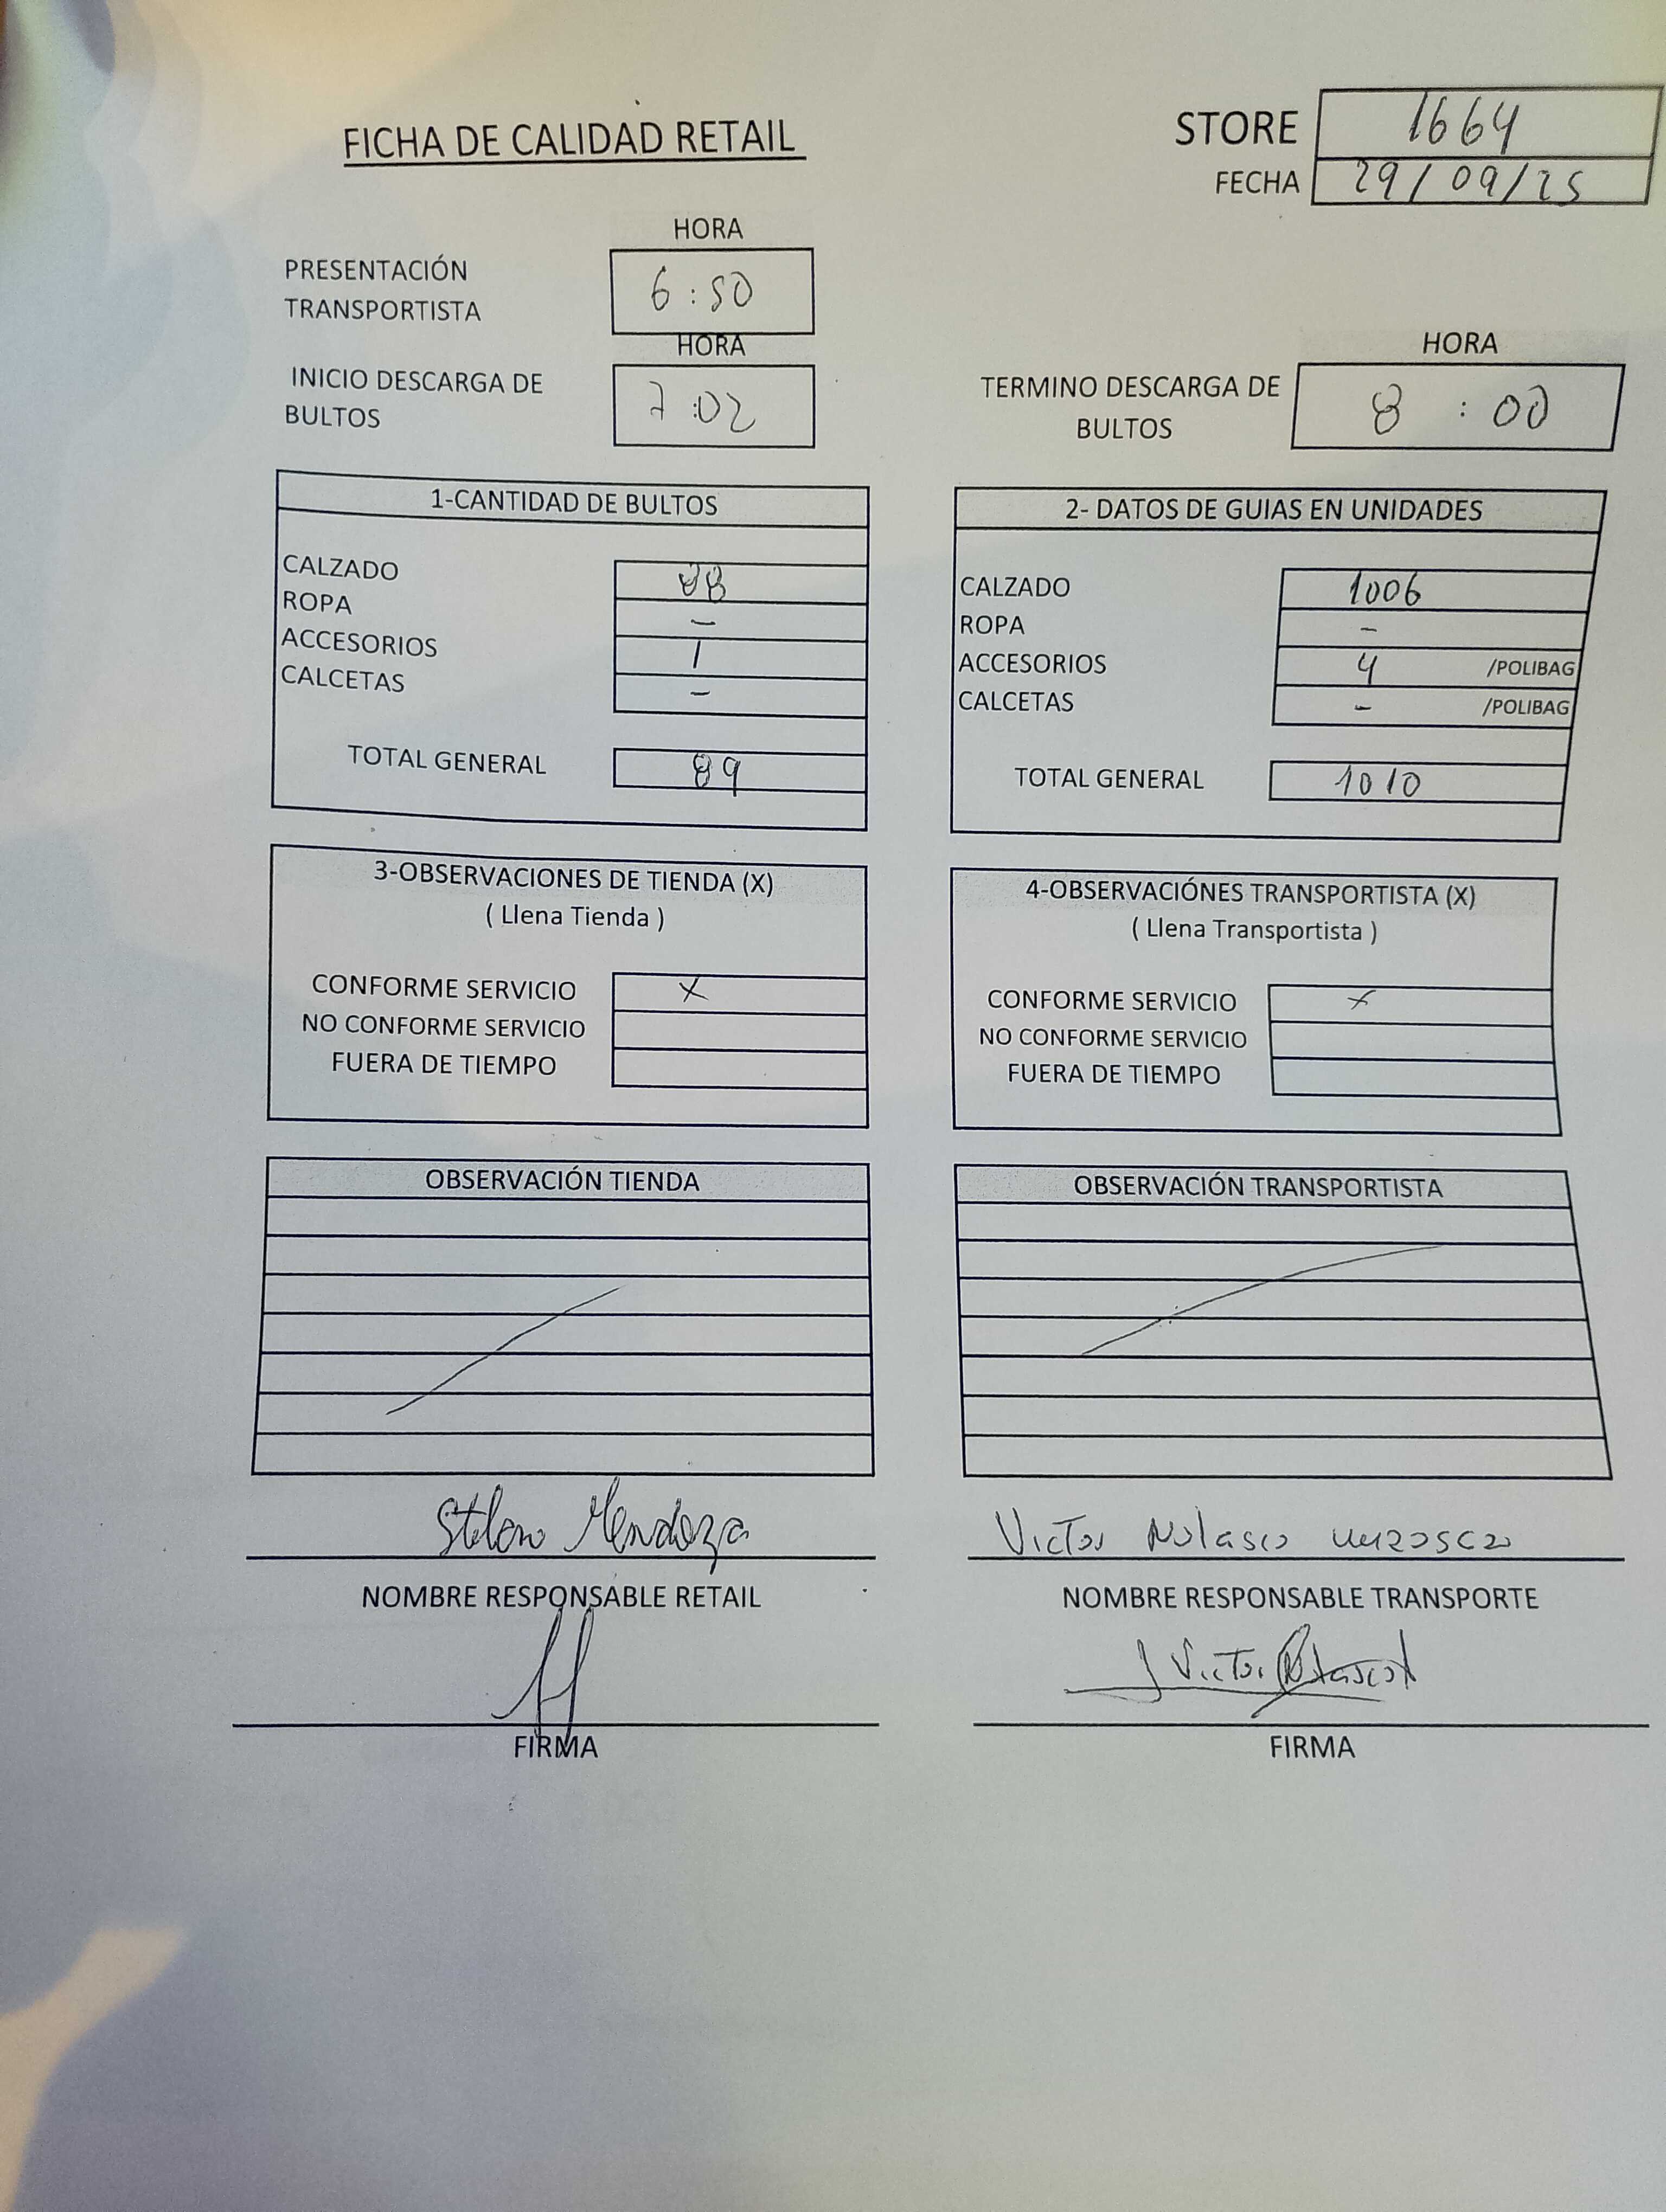 FICHA DE CALIDAD RETAIL
STORE 1664
FECHA 29/09/25
HORA
PRESENTACIÓN TRANSPORTISTA 6:50
HORA
INICIO DESCARGA DE BULTOS 7:02
HORA
TERMINO DESCARGA DE BULTOS 8:00
1-CANTIDAD DE BULTOS
CALZADO 88
ROPA -
ACCESORIOS 1
CALCETAS -
TOTAL GENERAL 89
2- DATOS DE GUIAS EN UNIDADES
CALZADO 1006
ROPA -
ACCESORIOS 4 /POLIBAG
CALCETAS - /POLIBAG
TOTAL GENERAL 1010
3-OBSERVACIONES DE TIENDA (X)
( Llena Tienda )
CONFORME SERVICIO X
NO CONFORME SERVICIO
FUERA DE TIEMPO
4-OBSERVACIÓNES TRANSPORTISTA (X)
( Llena Transportista )
CONFORME SERVICIO X
NO CONFORME SERVICIO
FUERA DE TIEMPO
OBSERVACIÓN TIENDA
OBSERVACIÓN TRANSPORTISTA
Mendoza
NOMBRE RESPONSABLE RETAIL
FIRMA
Victor Nolasco
NOMBRE RESPONSABLE TRANSPORTE
Victor Nolasco
FIRMA